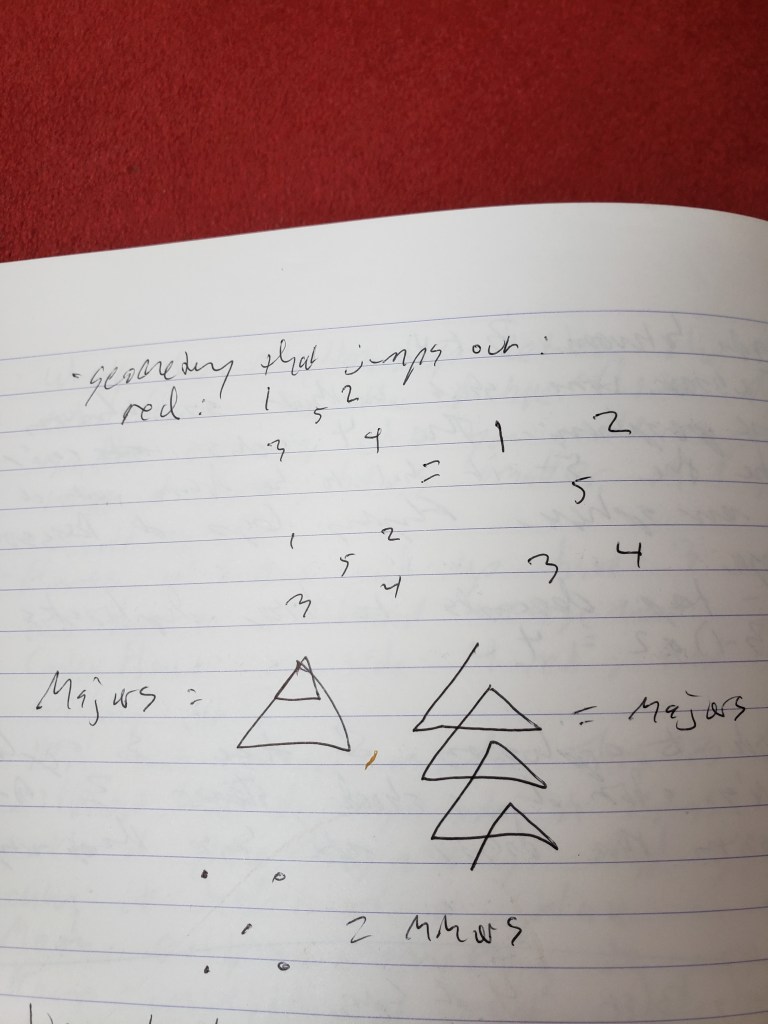 - geometry that jumps out:
red: 1 2
5
3 4
= 1 2
5
3 4
1 2
5
3 4
Majors =
= Majors
= Minors